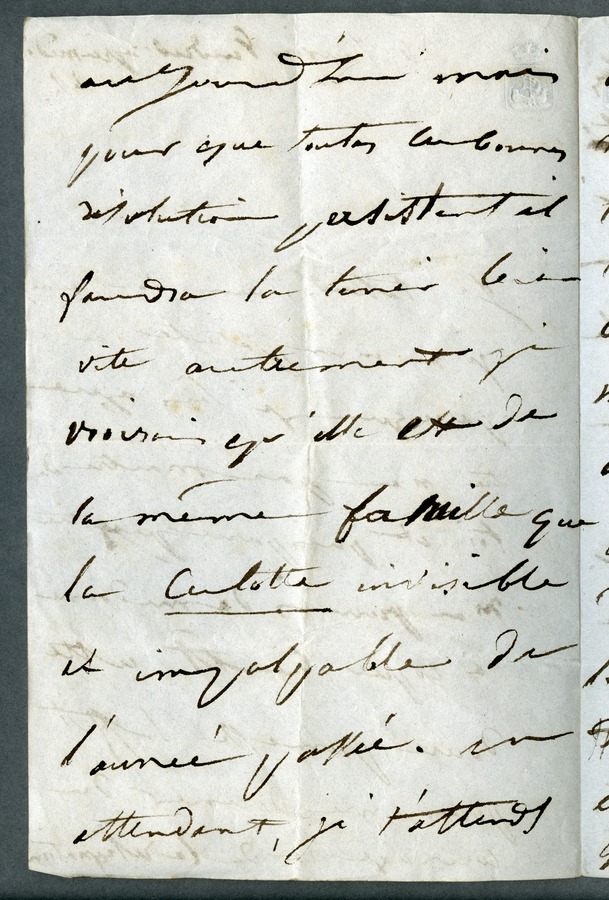 aujourd'hui mais
pour que toutes ces bonnes
résolution persistent il
faudra la tenir bien
vite autrement je
croirais qu'elle est de
la même famille que
la Culotte invisible
et impalpable de
l'année passée. en
attendant, je t'attends